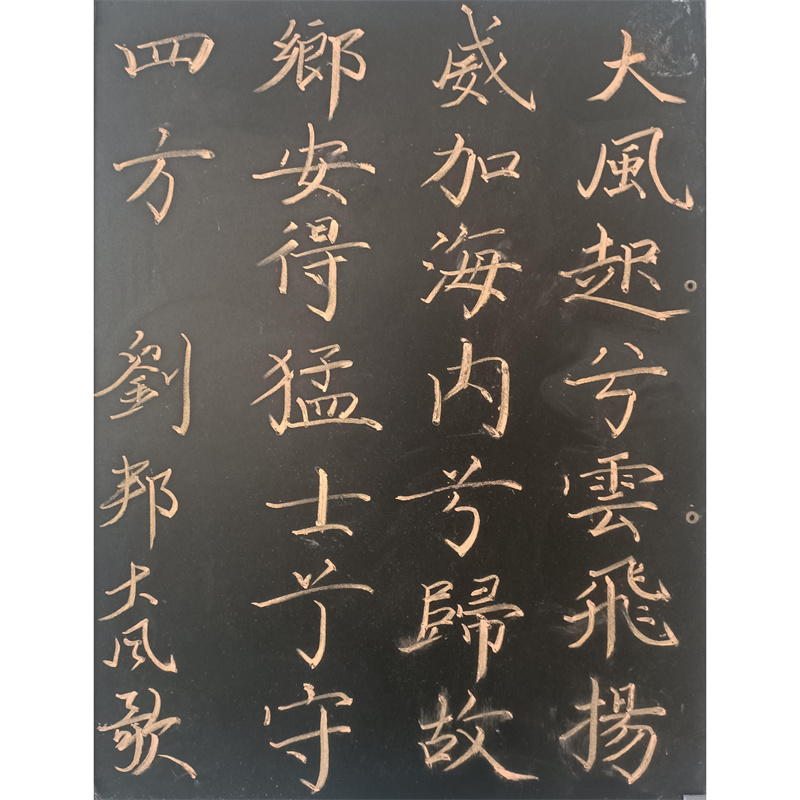 大風起兮雲飛揚
威加海内兮歸故
鄉安得猛士兮守
四方 劉邦大风歌